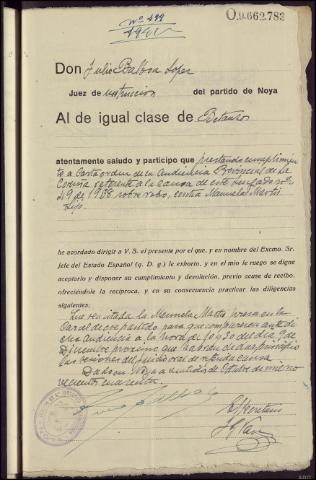 Nº 499
1941
O.0.662.783
Don Julio Balboa Lopez
Juez de instruccion del partido de Noya
Al de igual clase de Betanzos
atentamente saludo y participo que prestando cumplimien
te a Carta orden de la Audiencia Provincial de La
Coruña referente a la causa de este Juzgado nº
49 de 1938 sobre robo, contra Manuela Martis
he acordado dirigir a V. S. el presente por el que, y en nombre del Excmo. Sr.
Jefe del Estado Español (q. D. g.) le exhorto, y en el mío le ruego se digne
aceptarlo y disponer su cumplimiento y devolución, previo acuse de recibo,
ofreciéndole la recíproca, y en su consecuencia practicar las diligencias
siguientes:
Sea citada la Manuela Martis presa en la
Carcel de ese partido para que comparezca ante di
cha Audiencia a la hora de 10 y 30 del dia 9 de
Diciembre proximo que habran de dar principio
las sesiones del juicio oral de referida causa
Dado en Noya a de Octubre de mil no
vecientos cuarenta
El Secretario